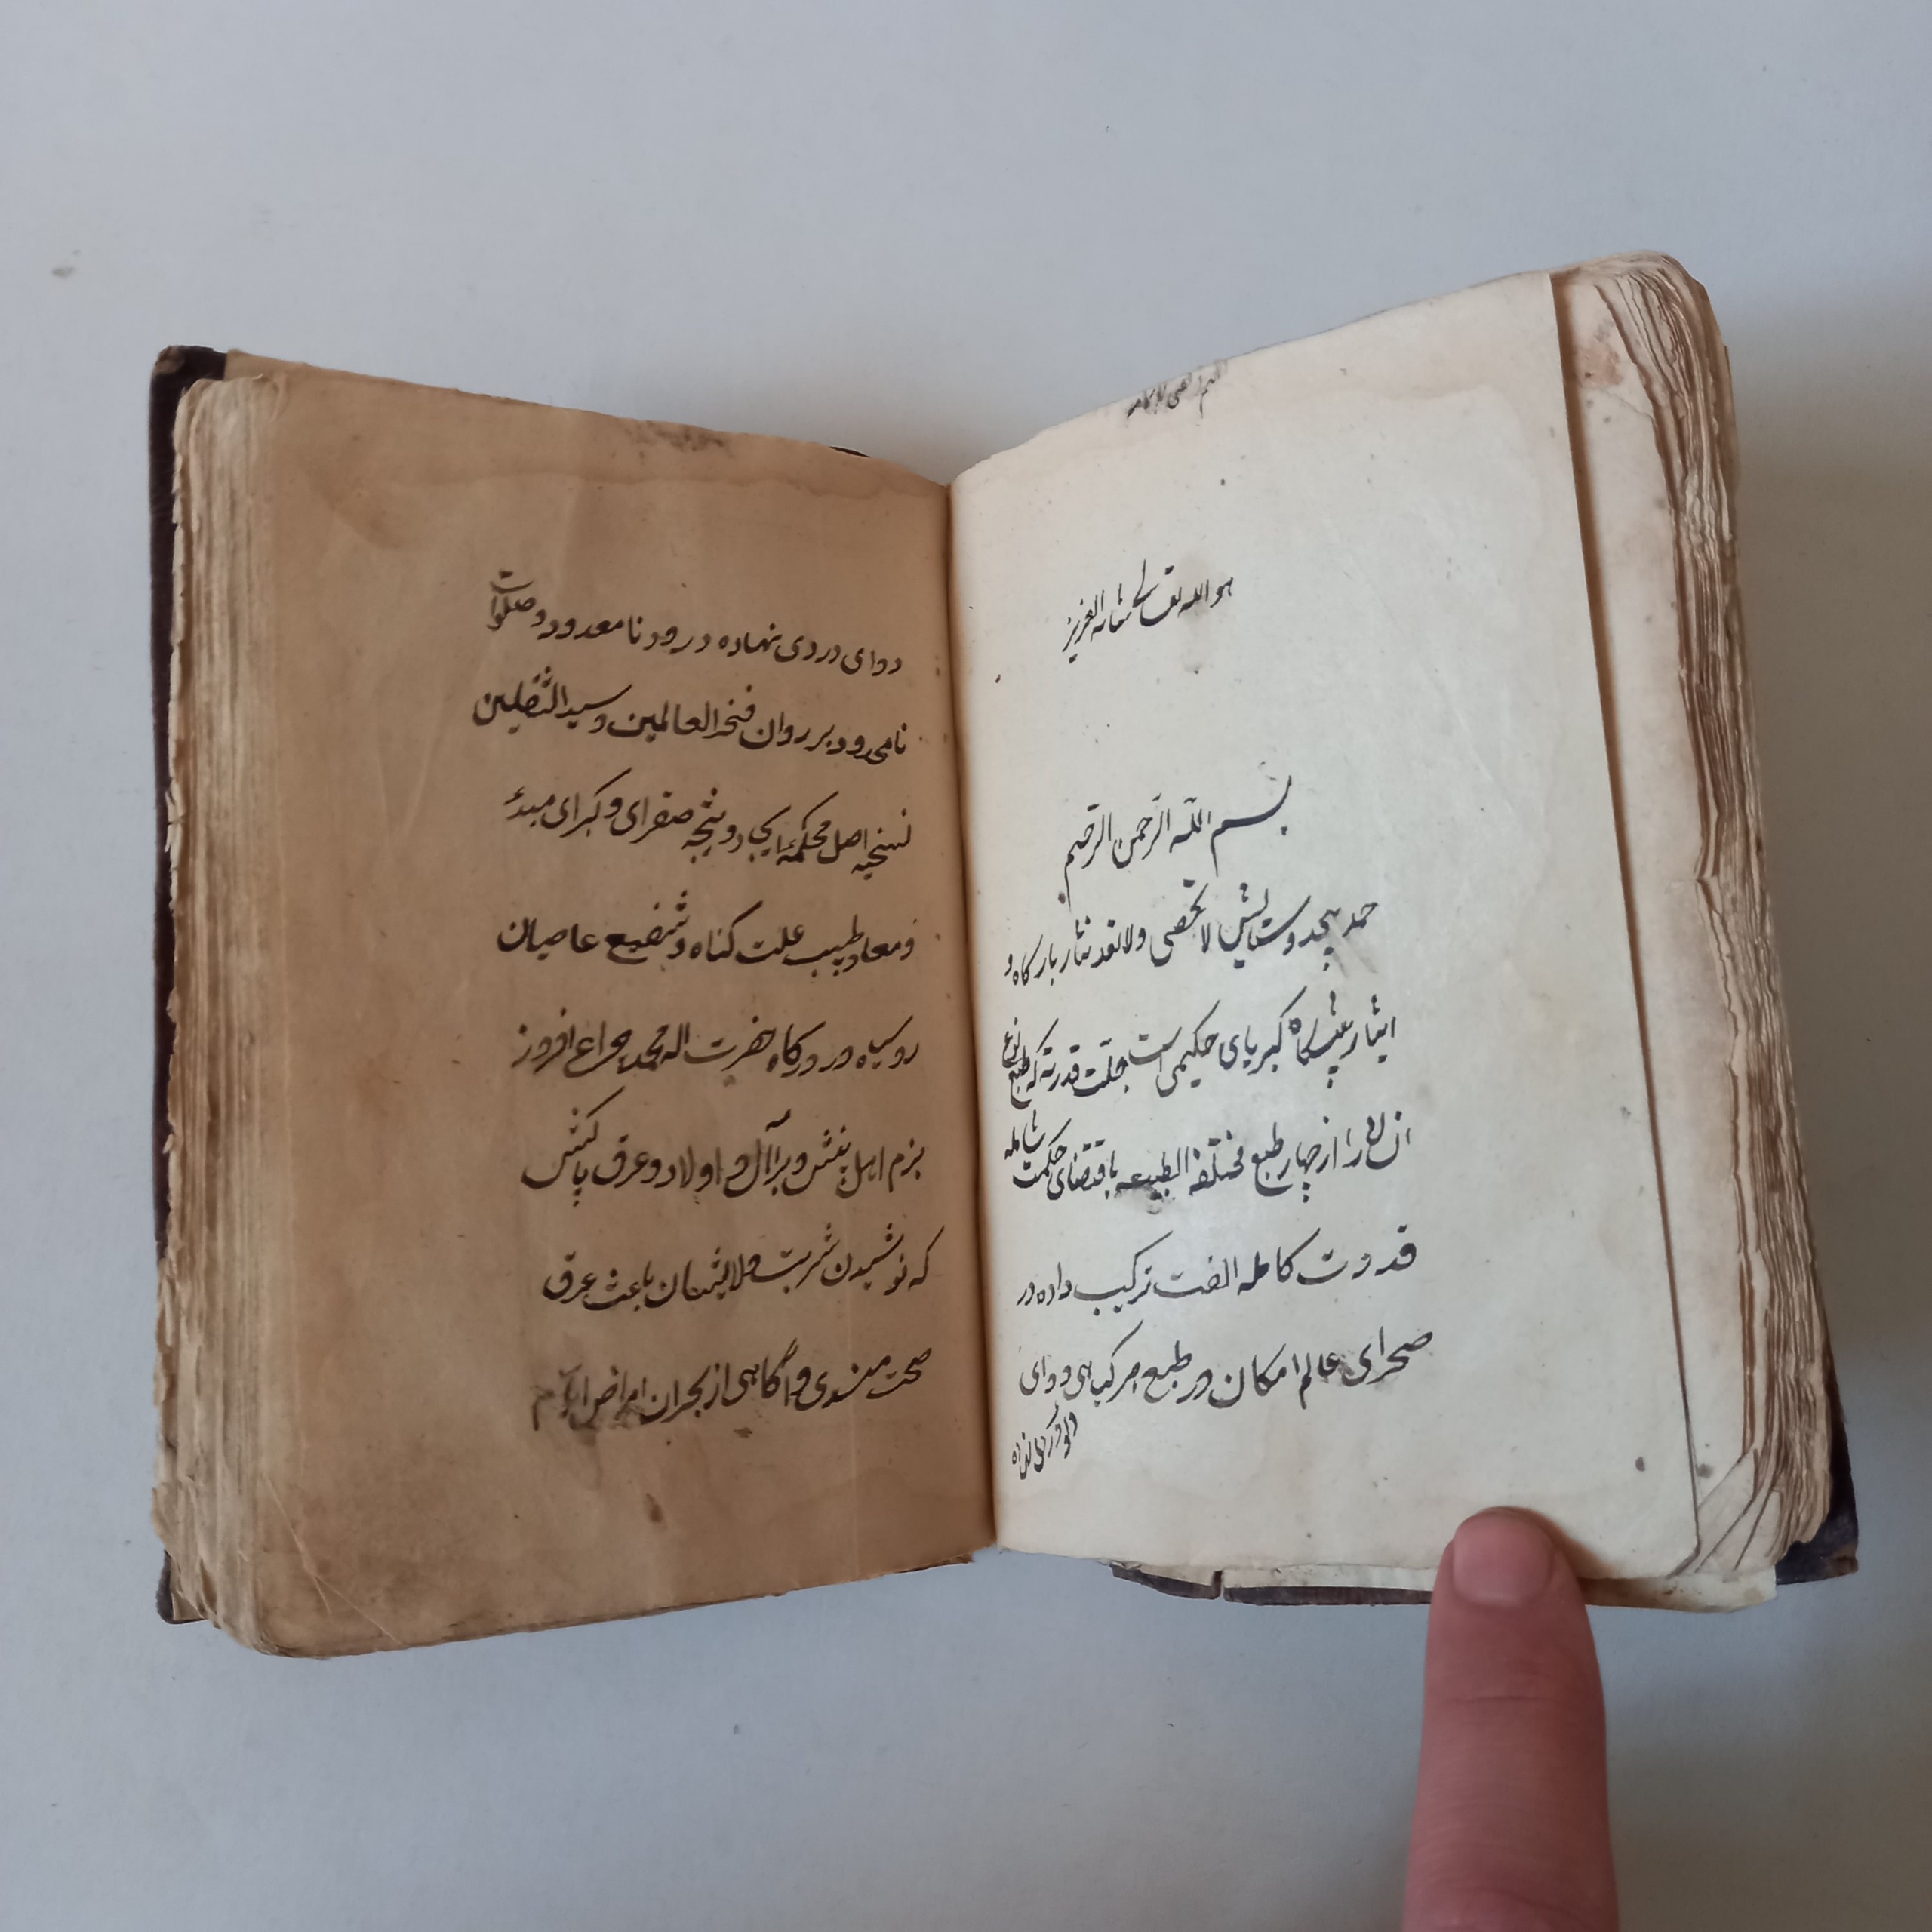 هو الله تعالی شانه العزیز
بسم الله الرحمن الرحیم
حمد بیحد و ستایش لا تحصی و لا تعد نثار بارکاه و
ایثار پیشکاه کبریای حکیمی است جلت قدرته که طبع نوع
انسان را از چهار طبع مختلفة الطبیعه باقتضای حکمت شامله
قدرت کامله الفت ترکیب داده در
صحرای عالم امکان در طبع هر کیاهی دوای
دوای دردی نهاده درود نامعدود و صلوات
نامحدود بر روان فخر العالمین و سید الثقلین
نسخه اصل محکمه ایجاد و نتیجه صغرای و کبرای مبدء
و معاد طبیب علت کناه و شفیع عاصیان
روسیاه در درکاه حضرت اله محمد چراغ افروز
بزم اهل بینش و بر آل و اولاد و عرق پاکش
که نوشیدن شربت ولایشان باعث عرق
صحت مندی و آکاهی از بحران امراض